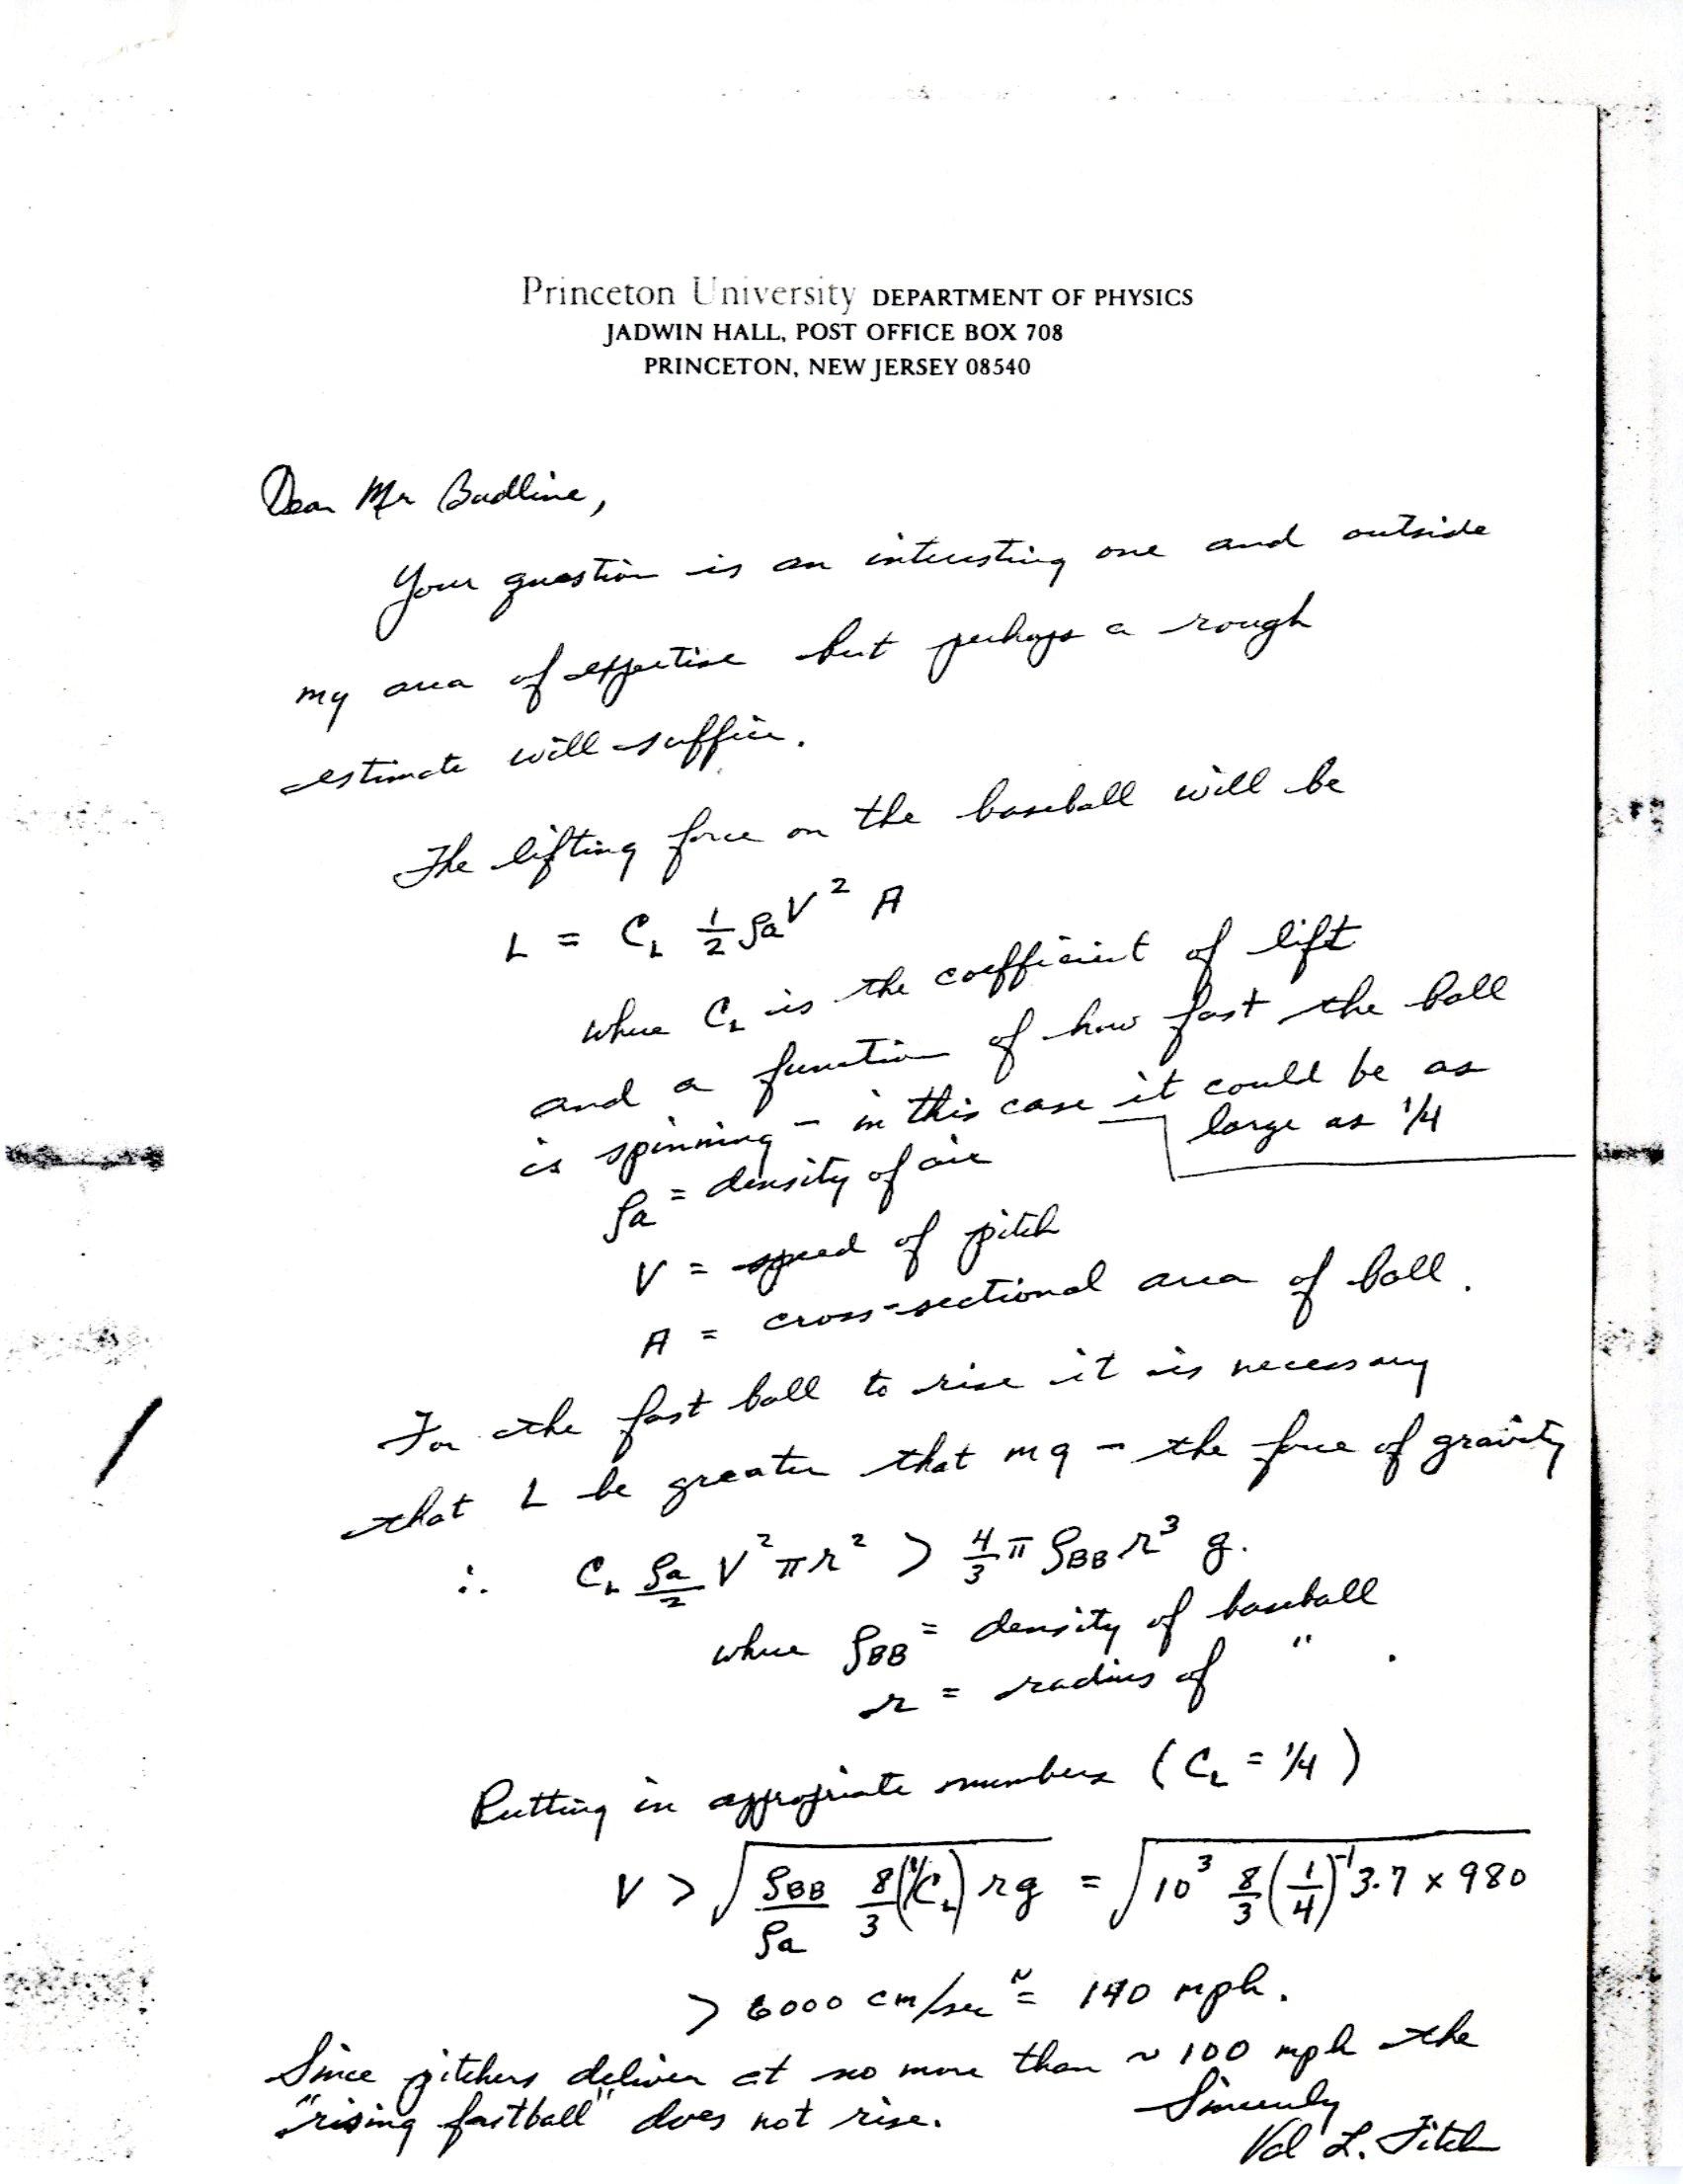 Princeton University DEPARTMENT OF PHYSICS
JADWIN HALL, POST OFFICE BOX 708
PRINCETON, NEW JERSEY 08540
Dear Mr Budline,
Your question is an interesting one and outside
my area of expertise but perhaps a rough
estimate will suffice.
The lifting force on the baseball will be
L = C_L 1/2 ρa V² A
where C_L is the coefficient of lift
and a function of how fast the ball
is spinning - in this case it could be as
large as 1/4
ρa = density of air
V = speed of pitch
A = cross-sectional area of ball.
For the fast ball to rise it is necessary
that L be greater that mg - the force of gravity
∴ C_L ρa/2 V² π r² > 4/3 π ρBB r³ g.
where ρBB = density of baseball
r = radius of " .
Putting in appropriate numbers (C_L = 1/4)
V > √(ρBB/ρa 8/3 (1/C_L) rg) = √(10³ 8/3 (1/4)⁻¹ 3.7 × 980)
> 6000 cm/sec ≅ 140 mph.
Since pitchers deliver at no more than ~ 100 mph the
"rising fastball" does not rise.
Sincerely
Val L. Fitch